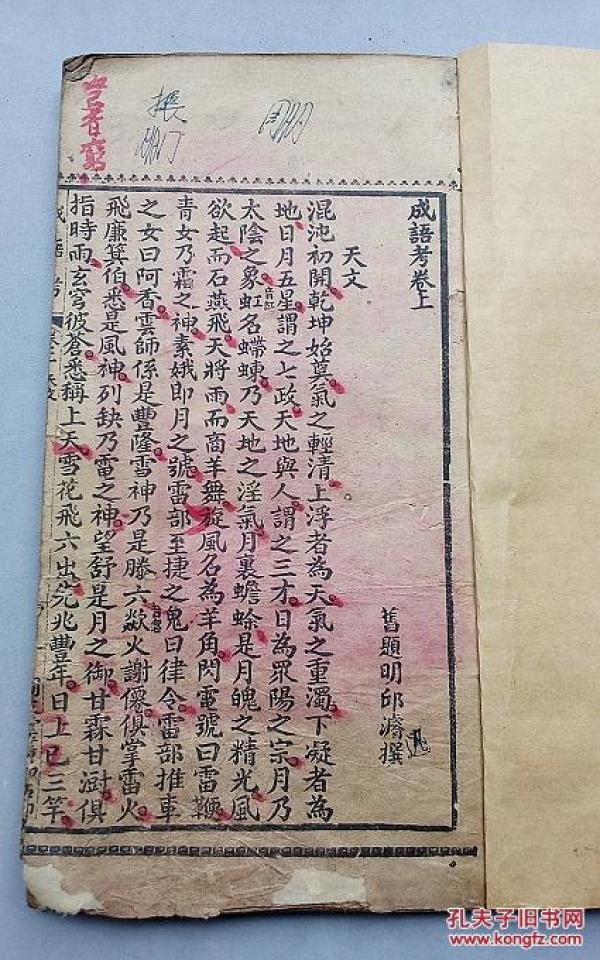 成語考卷上
舊題明邱濬撰
天文
混沌初開乾坤始奠氣之輕清上浮者為天氣之重濁下凝者為
地日月五星謂之七政天地與人謂之三才日為眾陽之宗月乃
太陰之象虹音紅名螮蝀乃天地之淫氣月裏蟾蜍是月魄之精光風
欲起而石燕飛天將雨而商羊舞旋風名為羊角閃電號曰雷鞭
青女乃霜之神素娥即月之號雷部至捷之鬼曰律令雷部推車
之女曰阿香雲師係是豐隆雪神乃是滕六歘火謝僊俱掌雷火
飛廉箕伯悉是風神列缺乃雷之神望舒是月之御甘霖甘澍俱
指時雨玄穹彼蒼悉稱上天雪花飛六出先兆豐年日上已三竿
成語考
孔夫子旧书网
www.kongfz.com